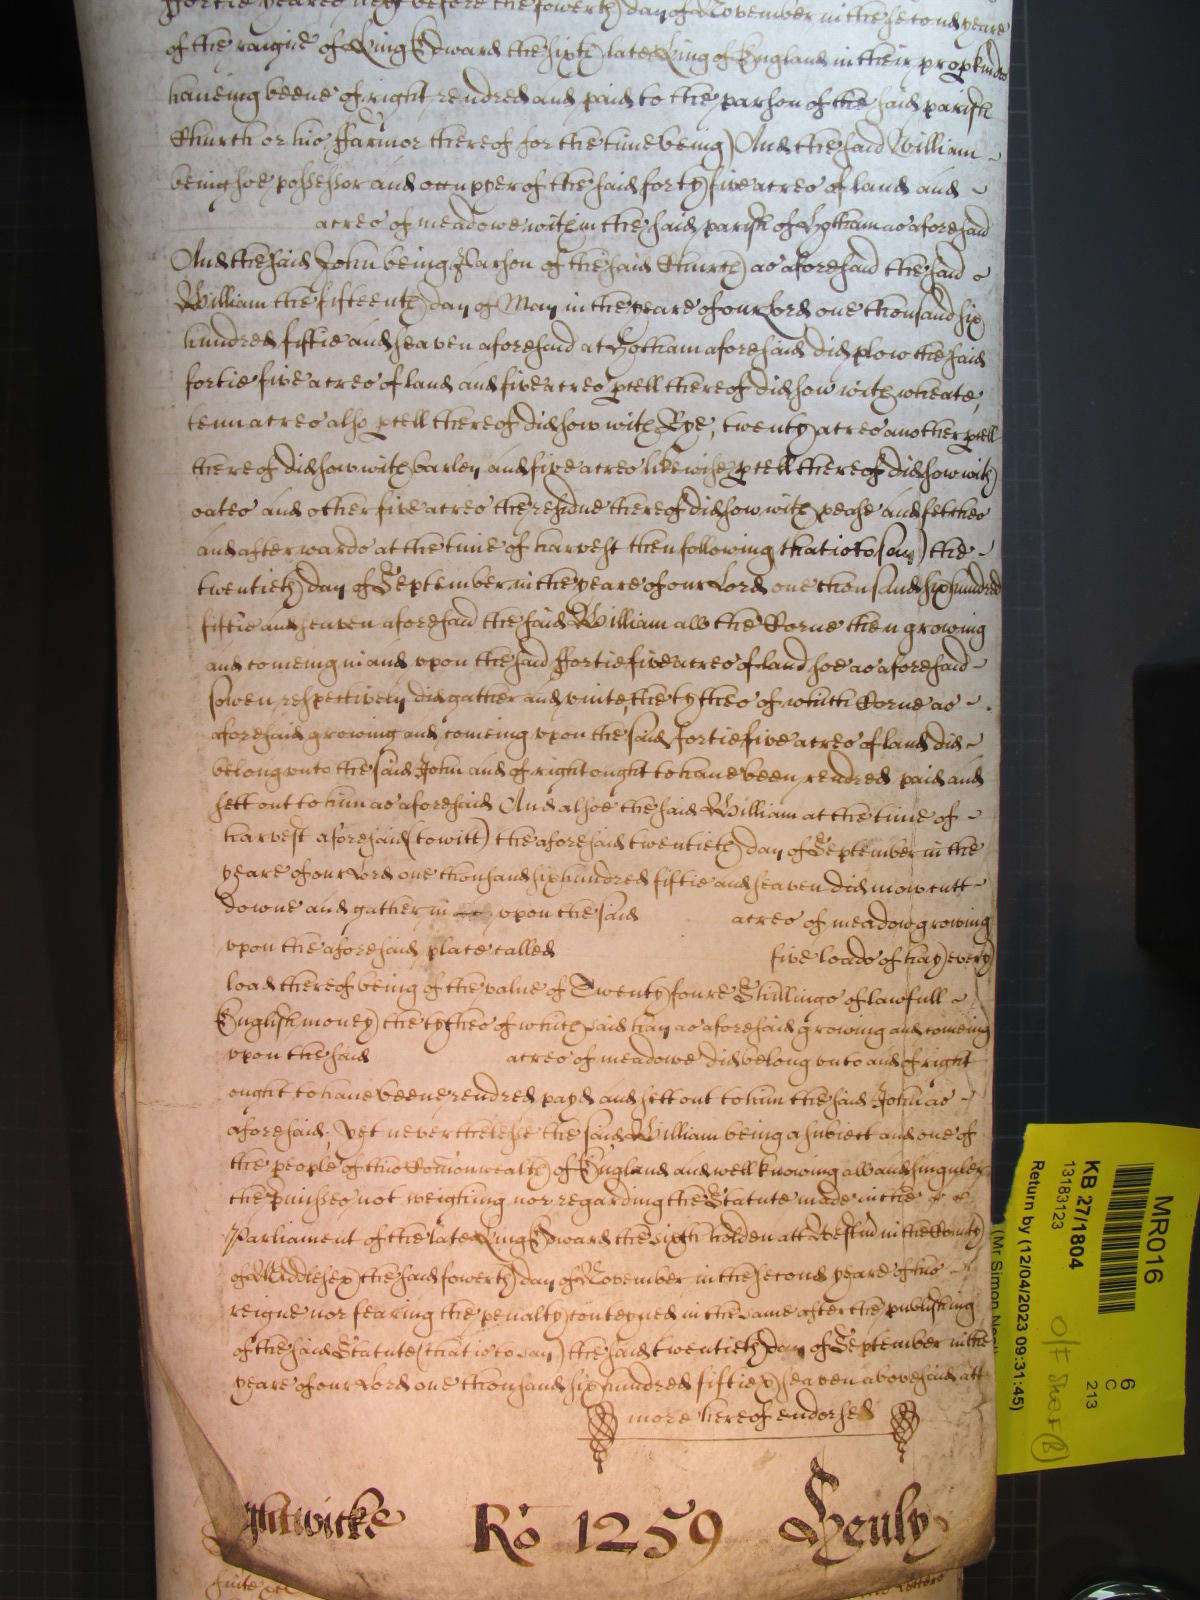 fortie yeares next before the fowerth day of November in the second yeare
of the raigne of King Edward the sixth late King of England in their prop kindes
haveing beene of right rendred and paid to the parson of the said parish
Church or his Farmor thereof for the time being And the said William
being soe possessor and occupyer of the said forty five acres of land and
acres of meadowe within the said parish of Gotham as aforesaid
And the said John being Parson of the said Church as aforesaid the said
William the fifteenth day of May in the yeare of our Lord one thousand six
hundred fiftie and seaven aforesaid at Gotham aforesaid did plow the said
fortie five acres of land and five acres pcell thereof did sow with wheate,
tenn acres also pcell thereof did sow with Rye, twenty acres another pcell
thereof did sow with barley and five acres likewise pcell thereof did sow with
oates and other five acres the residue thereof did sow with pease and fetches
and afterwards at the time of harvest then following that is to say the
twentieth day of September in the yeare of our Lord one thousand six hundred
fiftie and seaven aforesaid the said William all the Corne then growing
and comeing in and upon the said Fortie five acres of land soe as aforesaid
sowen respectively did gather and the tythes of which Corne as
aforesaid growing and comeing upon the said fortie five acres of land did
belong unto the said John and of right ought to have been rendred paid and
sett out to him as aforesaid And alsoe the said William at the time of
harvest aforesaid (to witt) the aforesaid twentieth day of September in the
yeare of our Lord one thousand six hundred fiftie and seaven did mow cutt
downe and gather in upon the said acres of meadow growing
upon the aforesaid place called five loads of hay every
load thereof being of the value of Twenty foure Shillings of lawfull
English money the tythes of which said hay as aforesaid growing and comeing
upon the said acres of meadowe did belong unto and of right
ought to have beene rendred payd and sett out to him the said John as
aforesaid, Yet neverthelesse the said William being a subiect and one of
the people of this Comonwealth of England and well knowing all and singuler
the pmisses not weighing nor regarding the Statute made in the
Parliament of the late King Edward the sixth holden att Westm in the County
of Middlesex the said fowerth day of November in the second yeare of his
reigne nor fearing the penalty conteyned in the same after the publishing
of the said Statute (that is to say) the said twentieth day of September in the
yeare of our Lord one thousand six hundred fiftie seaven abovesaid att
more hereof endorsed
Ro 1259 Henly
MR016
KB 27/1804
13183123
Return by (12/04/2023 09:31:45)
6
C
213